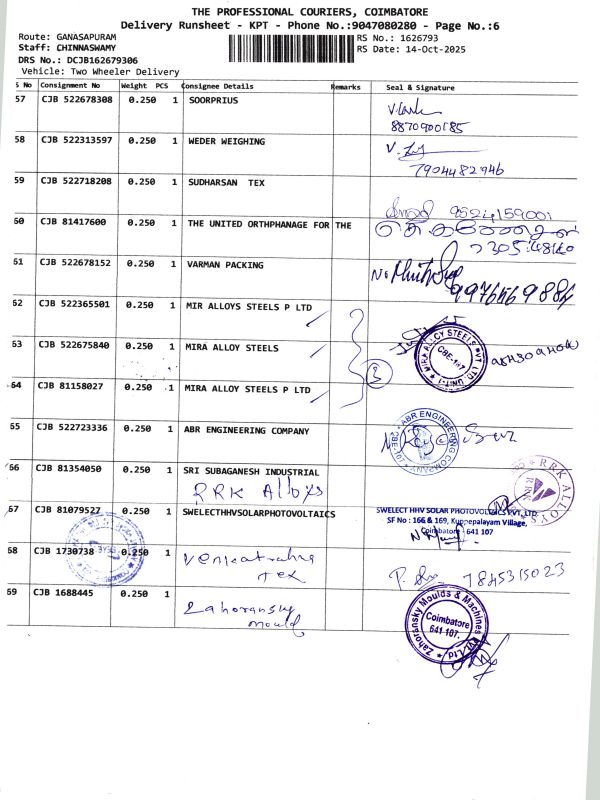 THE PROFESSIONAL COURIERS, COIMBATORE
Delivery Runsheet - KPT - Phone No.:9047080280 - Page No.:6
Route: GANASAPURAM
RS No.: 1626793
Staff: CHINNASWAMY
RS Date: 14-Oct-2025
DRS No.: DCJB162679306
Vehicle: Two Wheeler Delivery
S No Consignment No Weight PCS Consignee Details Remarks Seal & Signature
57 CJB 522678308 0.250 1 SOORPRIUS
8870900185
58 CJB 522313597 0.250 1 WEDER WEIGHING
7904482946
59 CJB 522718208 0.250 1 SUDHARSAN TEX
9524159001
60 CJB 81417600 0.250 1 THE UNITED ORTHPHANAGE FOR THE
61 CJB 522678152 0.250 1 VARMAN PACKING
62 CJB 522365501 0.250 1 MIR ALLOYS STEELS P LTD
63 CJB 522675840 0.250 1 MIRA ALLOY STEELS
MIRA ALLOY STEELS PVT LTD UNIT-I
CBE-107
3
64 CJB 81158027 0.250 1 MIRA ALLOY STEELS P LTD
65 CJB 522723336 0.250 1 ABR ENGINEERING COMPANY
ABR ENGINEERING COMPANY
66 CJB 81354050 0.250 1 SRI SUBAGANESH INDUSTRIAL
RRK Alloys
RRK ALLOYS
RRK
67 CJB 81079527 0.250 1 SWELECTHHVSOLARPHOTOVOLTAICS
SWELECT HHV SOLAR PHOTOVOLTAICS PVT. LTD.
SF No : 166 & 169, Kuppepalayam Village,
Coimbatore - 641 107
68 CJB 1730738 0.250 1 Venkatrahna
Tex
7845315023
69 CJB 1688445 0.250 1 Zahoransky
mould
Zahoransky Moulds & Machines Pvt Ltd
Coimbatore
641 107.